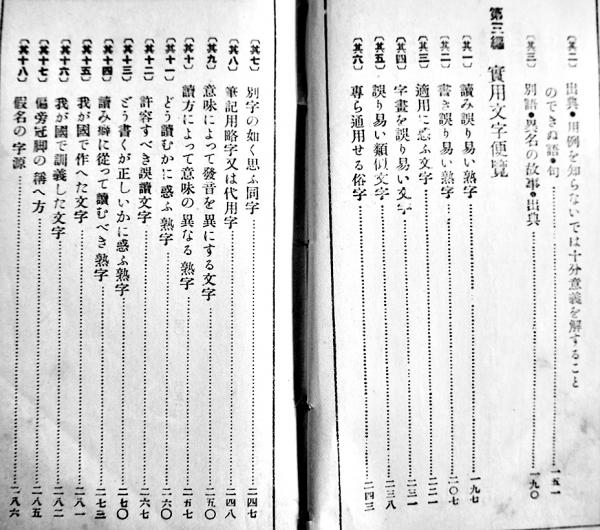 〔其二〕 出典・用例を知らないでは十分意義を解すること
のできぬ語・句……一五一
〔其三〕 別語・異名の故事・出典……一九〇
第三編 實用文字便覽
〔其一〕 讀み誤り易い熟字……一九七
〔其二〕 書き誤り易い熟字……二〇七
〔其三〕 適用に惑ふ文字……二二一
〔其四〕 字畫を誤り易い文字……二三一
〔其五〕 誤り易い類似文字……二三八
〔其六〕 專ら通用せる俗字……二四三
〔其七〕 別字の如く思ふ同字……二四七
〔其八〕 筆記用略字又は代用字……二四八
〔其九〕 意味によつて發音を異にする文字……二五〇
〔其十〕 讀方によつて意味の異なる熟字……二五七
〔其十一〕 どう讀むかに惑ふ熟字……二六〇
〔其十二〕 許容すべき誤讀文字……二六七
〔其十三〕 どう書くが正しいかに惑ふ熟字……二七〇
〔其十四〕 讀み癖に從つて讀むべき熟字……二七三
〔其十五〕 我が國で作へた文字……二八一
〔其十六〕 我が國で訓義した文字……二八二
〔其十七〕 偏旁冠脚の稱へ方……二八五
〔其十八〕 假名の字源……二八六